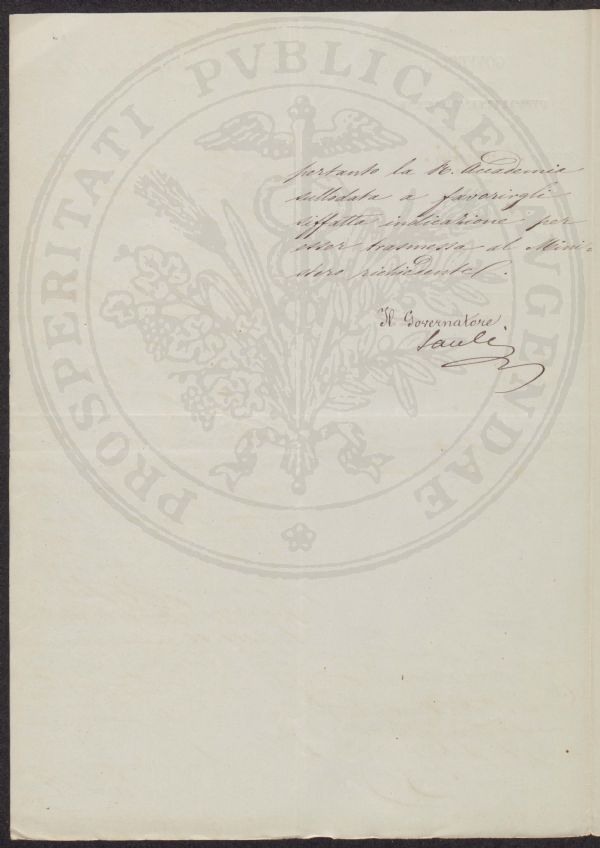 PROSPERITATI PVBLICAE AVGENDAE
portanto la R. Accademia
sullodata a favorirgli
siffatta indicazione per
esser trasmessa al Mini=
stero richiedente.
Il Governatore
Sauli